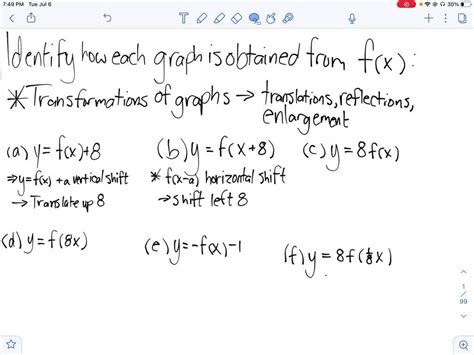 7:49 PM Tue Jul 6
30%
Identify how each graph is obtained from f(x):
* Transformations of graphs → translations, reflections,
enlargement
(a) y=f(x)+8 (b) y=f(x+8) (c) y=8f(x)
⇒ y=f(x)+a vertical shift * f(x-a) horizontal shift
→ Translate up 8 → shift left 8
(d) y=f(8x) (e) y=-f(x)-1 (f) y=8f(⅛x)
1
99